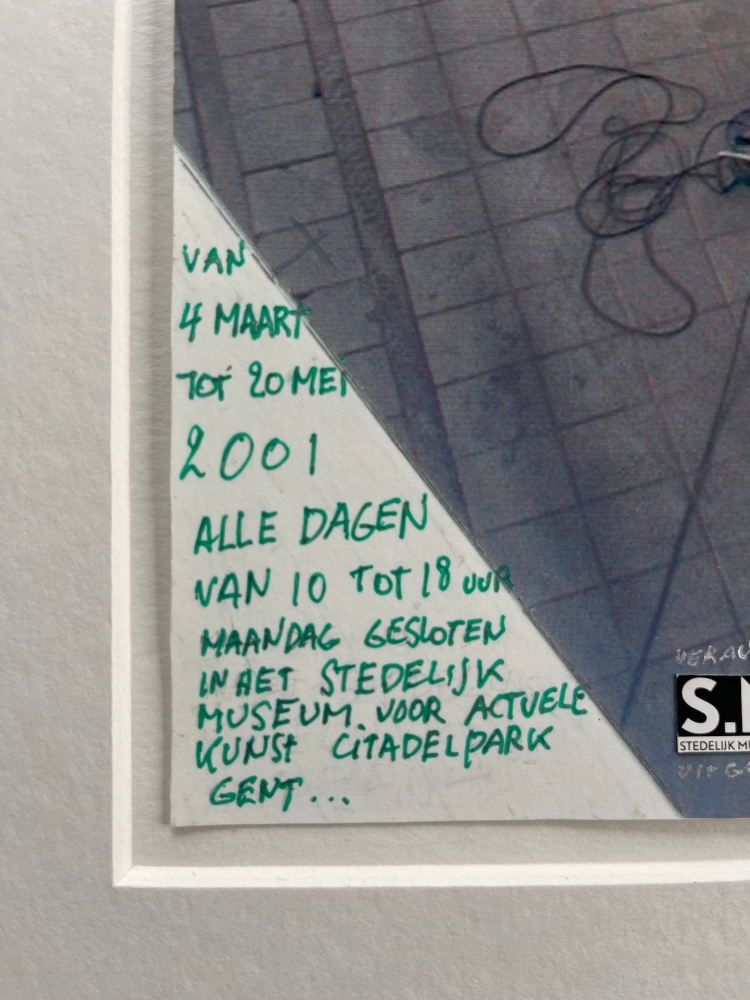 VAN
4 MAART
TOT 20 MEI
2001
ALLE DAGEN
VAN 10 TOT 18 UUR
MAANDAG GESLOTEN
IN HET STEDELIJK
MUSEUM VOOR ACTUELE
KUNST CITADELPARK
GENT...
S.
STEDELIJK